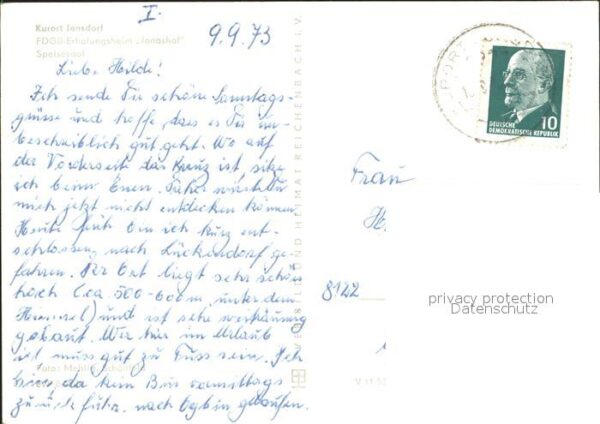 I.
9.9.73
Kurort Jonsdorf
FDGB-Erholungsheim „Jonashof"
Speisesaal
Liebe Hilde!
Ich sende Dir schöne Samstags-
grüsse und hoffe, dass es Dir un-
beschreiblich gut geht. Wo auf
der Vorderseite das Kreuz ist, sitze
ich beim Essen. Daher würdest Du
mich jetzt nicht entdecken können
Heute früh bin ich kurz ent-
schlossen nach Lückendorf ge-
fahren. Der Ort liegt sehr schön
hoch (ca 500-600m, unter dem
Himmel) und ist sehr weiträumig
gebaut. Wer hier im Urlaub
ist muss gut zu Fuss sein. Ich
bin, da kein Bus vormittags
zurück fuhr, nach Oybin gelaufen.
REICHENBACH i. V.
UND HEIMAT
DEUTSCHE
DEMOKRATISCHE REPUBLIK
10
Frau
H
8122
privacy protection
Datenschutz
V 11